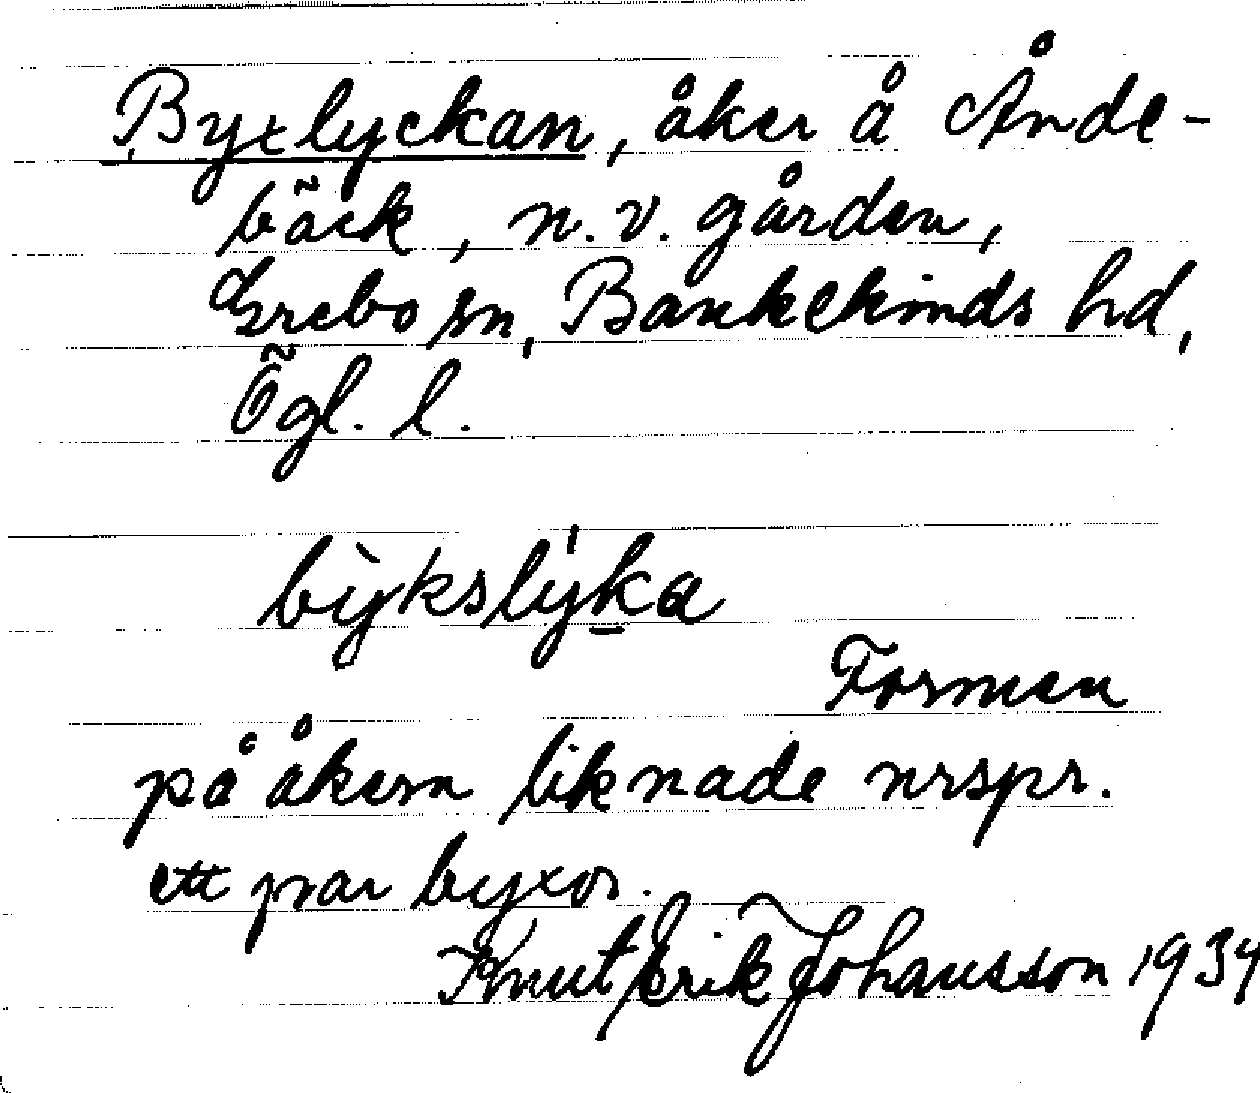 Byxlyckan, åker å Ånde-
bäck, n.v. gården,
Grebo sn, Bankekinds hd,
Ögl. l.
bỳkslýka
Formen
på åkern liknade urspr.
ett par byxor.
Knut Erik Johansson 1934